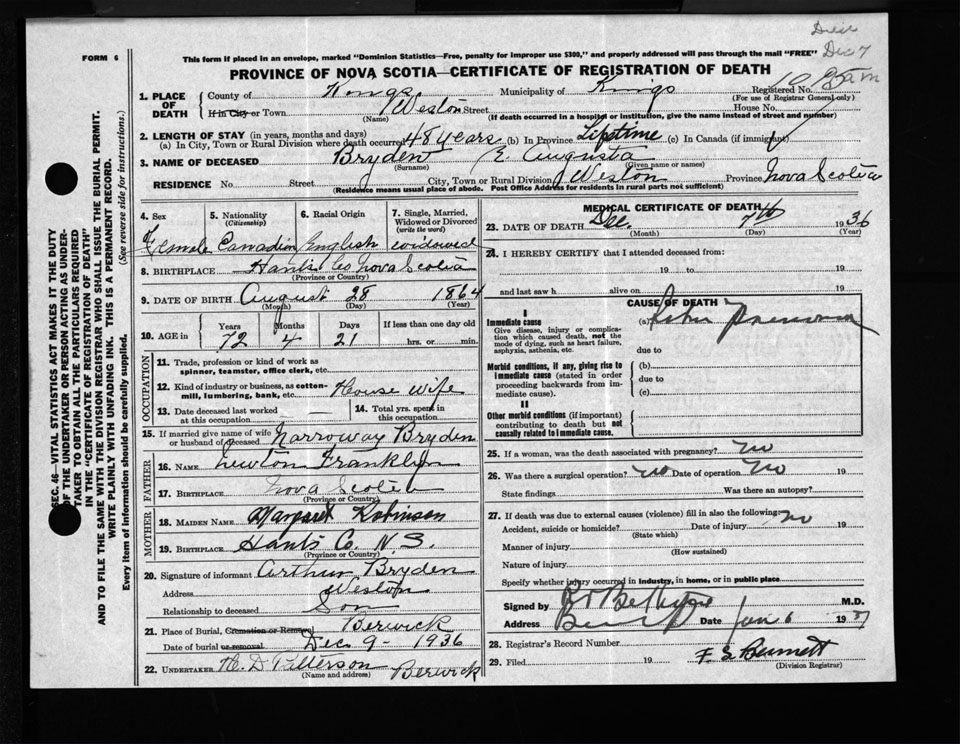 Dec 7
FORM 6
This form if placed in an envelope, marked "Dominion Statistics—Free, penalty for improper use $300," and properly addressed will pass through the mail "FREE"
PROVINCE OF NOVA SCOTIA—CERTIFICATE OF REGISTRATION OF DEATH
SEC. 46—VITAL STATISTICS ACT MAKES IT THE DUTY
OF THE UNDERTAKER OR PERSON ACTING AS UNDER-
TAKER TO OBTAIN ALL THE PARTICULARS REQUIRED
IN THE "CERTIFICATE OF REGISTRATION OF DEATH"
AND TO FILE THE SAME WITH THE DIVISION REGISTRAR WHO SHALL ISSUE THE BURIAL PERMIT.
WRITE PLAINLY WITH UNFADING INK. THIS IS A PERMANENT RECORD.
Every item of information should be carefully supplied. (See reverse side for instructions.)
1. PLACE OF DEATH
County of Kings Municipality of Kings Registered No.
(For use of Registrar General only)
If in City or Town Weston Street House No.
(Name) (If death occurred in a hospital or institution, give the name instead of street and number)
2. LENGTH OF STAY (in years, months and days)
(a) In City, Town or Rural Division where death occurred 48 years (b) In Province Lifetime (c) In Canada (if immigrant)
3. NAME OF DECEASED Bryden E. Augusta
(Surname) (Given name or names)
RESIDENCE No. Street City, Town or Rural Division Weston Province Nova Scotia
(Residence means usual place of abode. Post Office Address for residents in rural parts not sufficient)
4. Sex 5. Nationality (Citizenship) 6. Racial Origin 7. Single, Married, Widowed or Divorced (write the word)
Female Canadian English widowed
8. BIRTHPLACE Hants Co Nova Scotia
(Province or Country)
9. DATE OF BIRTH August 28 1864
(Month) (Day) (Year)
10. AGE in Years Months Days If less than one day old
72 4 21 hrs. or min.
OCCUPATION
11. Trade, profession or kind of work as
spinner, teamster, office clerk, etc.
12. Kind of industry or business, as cotton-
mill, lumbering, bank, etc. House Wife
13. Date deceased last worked at this occupation
14. Total yrs. spent in this occupation
15. If married give name of wife or husband of deceased Narroway Bryden
FATHER
16. NAME Newton Franklyn
17. BIRTHPLACE Nova Scotia
(Province or Country)
MOTHER
18. MAIDEN NAME Margaret Robinson
19. BIRTHPLACE Hants Co. N.S.
(Province or Country)
20. Signature of informant Arthur Bryden
Address Weston
Relationship to deceased Son
21. Place of Burial, Cremation or Removal Berwick
Date of burial or removal Dec 9 - 1936
22. UNDERTAKER H. D Patterson Berwick
(Name and address)
MEDICAL CERTIFICATE OF DEATH
23. DATE OF DEATH Dec. 7th 1936
(Month) (Day) (Year)
24. I HEREBY CERTIFY that I attended deceased from:
19 to 19
and last saw h alive on 19
CAUSE OF DEATH
I
Immediate cause (a)
Give disease, injury or complica-
tion which caused death, not the
mode of dying, such as heart failure,
asphyxia, asthenia, etc.
due to
Morbid conditions, if any, giving rise to
immediate cause (stated in order
proceeding backwards from im-
mediate cause).
(b)
due to
(c)
II
Other morbid conditions (if important)
contributing to death but not
causally related to immediate cause.
25. If a woman, was the death associated with pregnancy? no
26. Was there a surgical operation? no Date of operation no 19
State findings Was there an autopsy?
27. If death was due to external causes (violence) fill in also the following:
Accident, suicide or homicide? Date of injury no 19
(State which)
Manner of injury
(How sustained)
Nature of injury
Specify whether injury occurred in industry, in home, or in public place
Signed by M.D.
Address Date Jan 6 1937
28. Registrar's Record Number
29. Filed 19 F. S. Burnett
(Division Registrar)